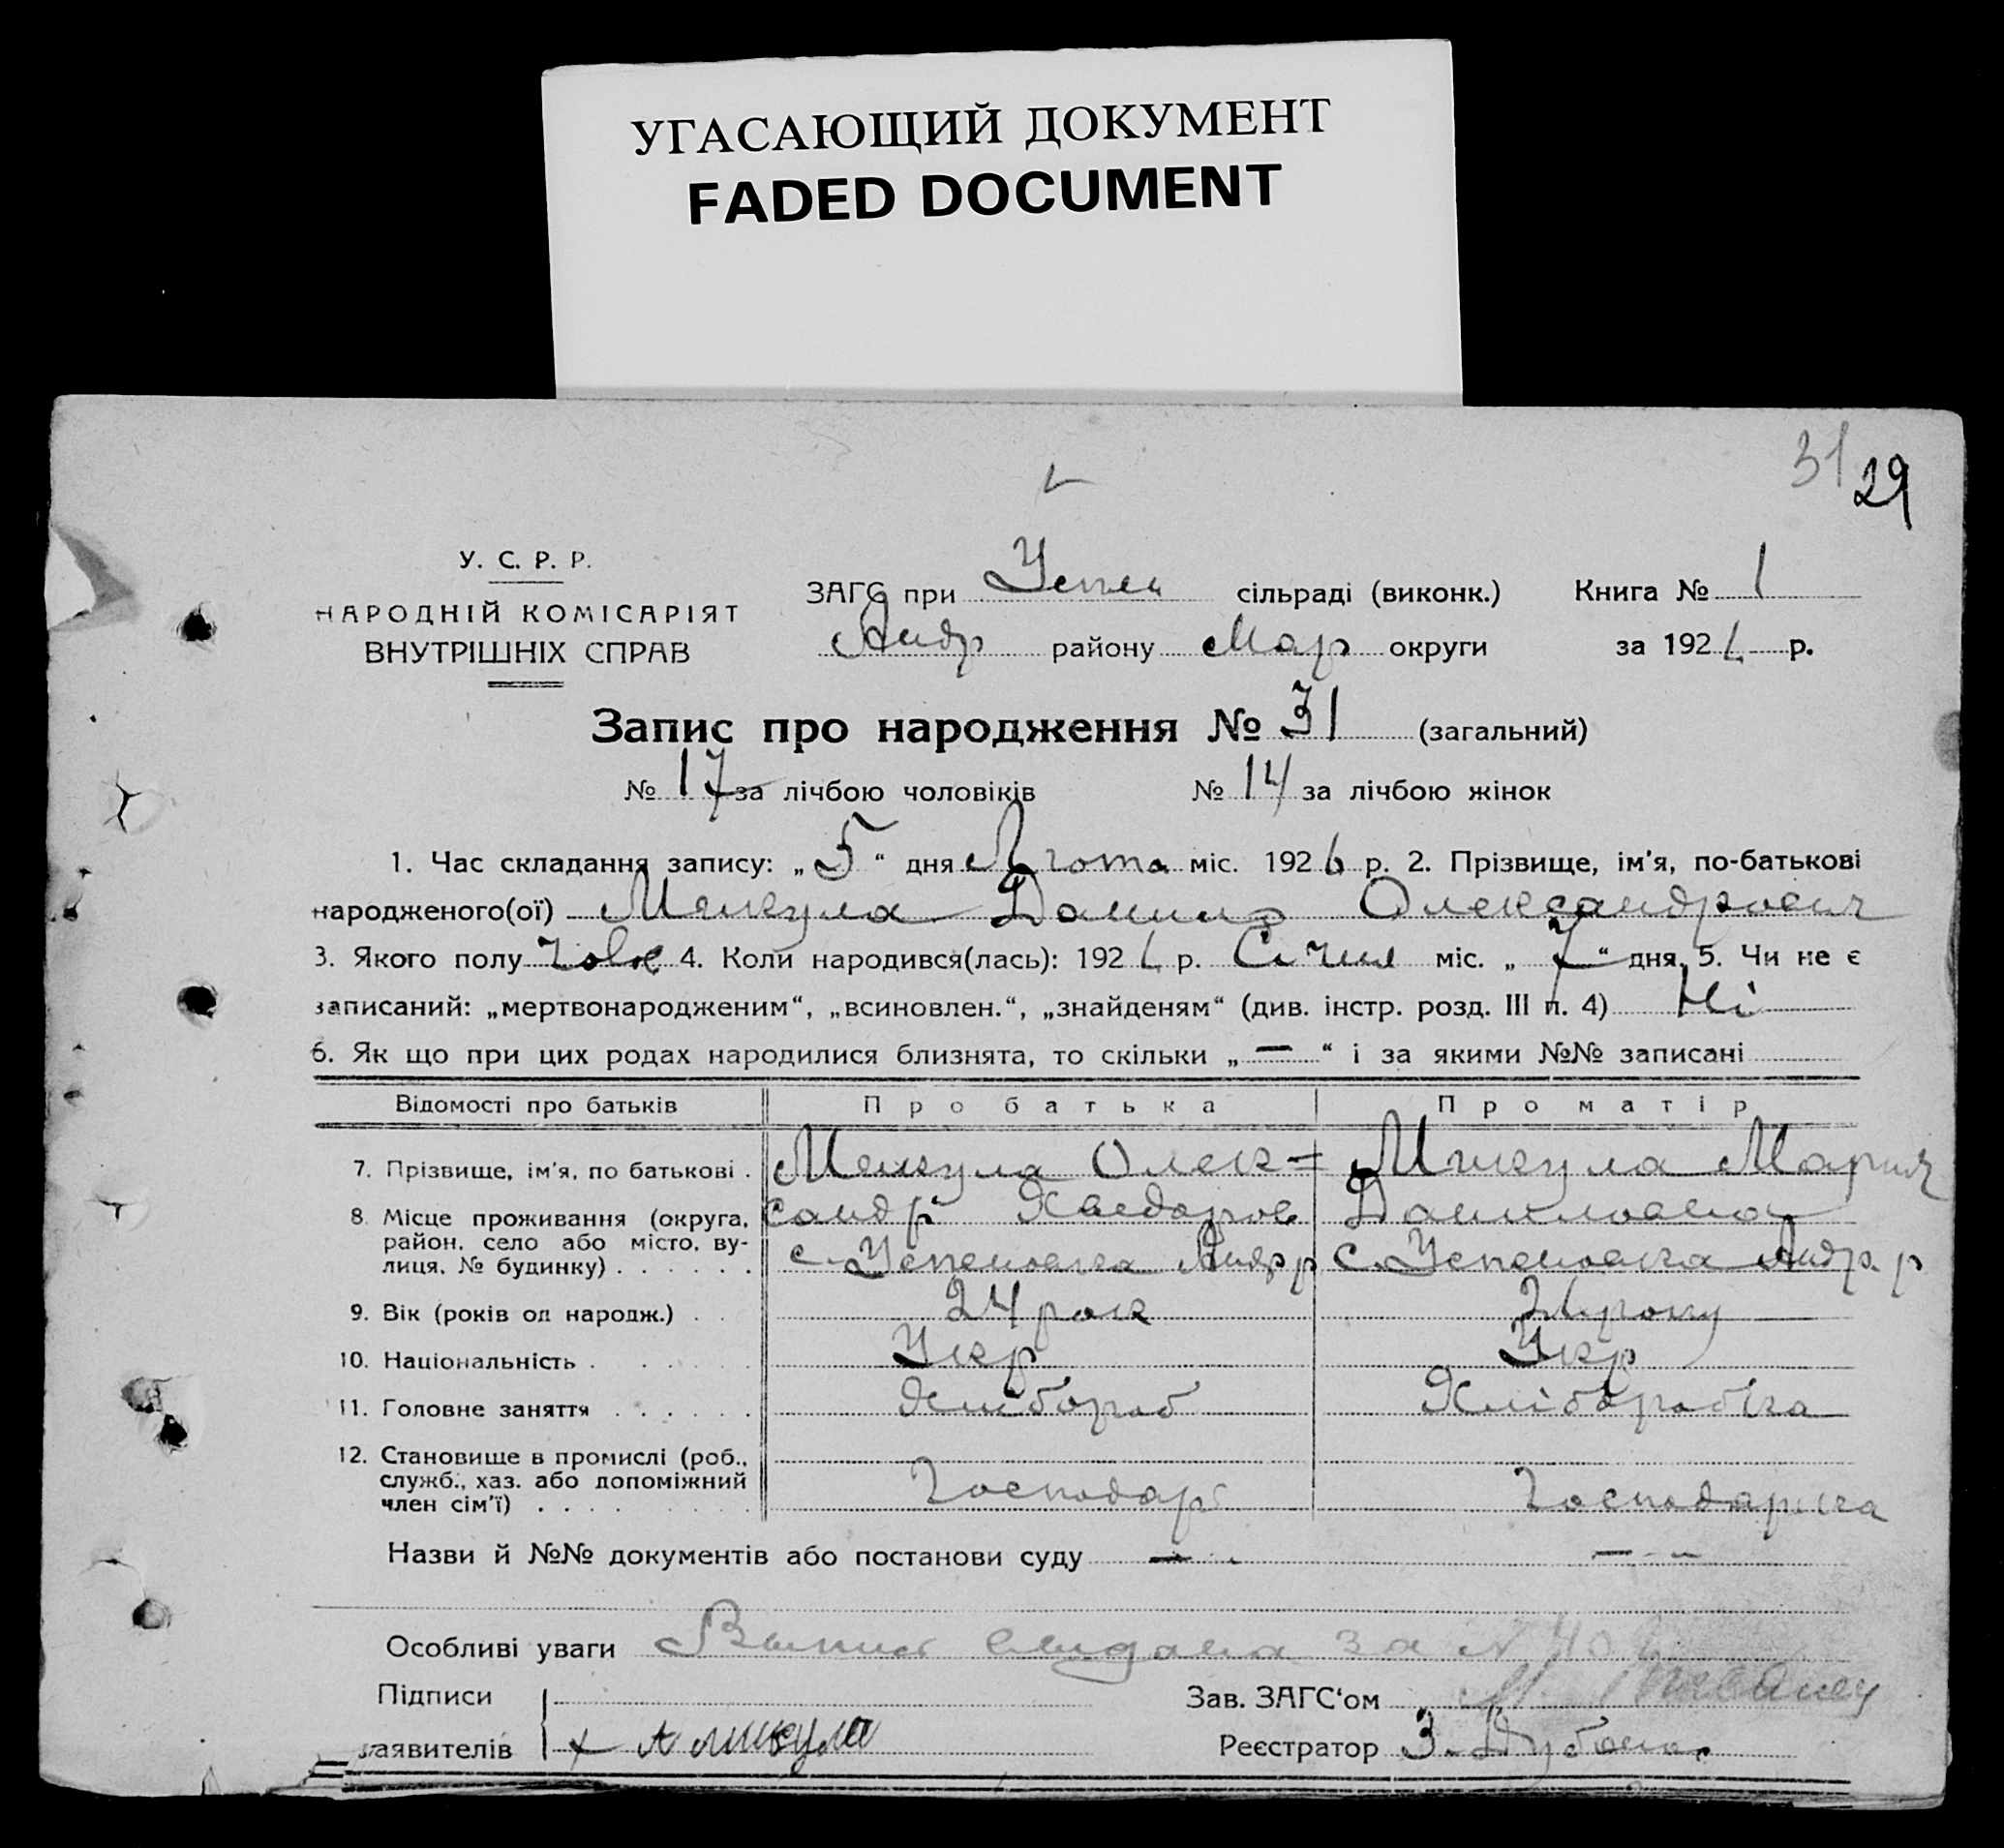 УГАСАЮЩИЙ ДОКУМЕНТ
FADED DOCUMENT
31 29
У. С. Р. Р.
НАРОДНІЙ КОМІСАРІЯТ
ВНУТРІШНІХ СПРАВ
ЗАГС при Успен сільраді (виконк.) Книга № 1
Андр району Мар округи за 1926 р.
Запис про народження № 31 (загальний)
№ 17 за лічбою чоловіків № 14 за лічбою жінок
1. Час складання запису: „5“ дня Лютого міс. 1926 р. 2. Прізвище, ім'я, по-батькові
народженого(ої) Микула Данило Олександрович
3. Якого полу чолов 4. Коли народився(лась): 1926 р. Січня міс. „7“ дня. 5. Чи не є
записаний: „мертвонародженим“, „всиновлен.“, „знайденям“ (див. інстр. розд. III п. 4) Ні
6. Як що при цих родах народилися близнята, то скільки „—“ і за якими №№ записані
Відомості про батьків Про батька Про матір
7. Прізвище, ім'я, по батькові . Микула Олек= Микула Мария
сандр Хведоров Даниловна
8. Місце проживання (округа, район, село або місто, вулиця, № будинку) . . . . . . с. Успеновка Андр р с. Успеновка Андр. р
9. Вік (років од народж.) . . 24 рок року
10. Національність . . . . . . Укр Укр
11. Головне заняття . . . . . . Хлібороб Хліборобка
12. Становище в промислі (роб., служб., хаз. або допоміжний член сім'ї) . . . . Господарь Господарка
Назви й №№ документів або постанови суду — —
Особливі уваги Выпись выдана за № 40
Підписи Зав. ЗАГС'ом
заявителів + А микула Реєстратор З.